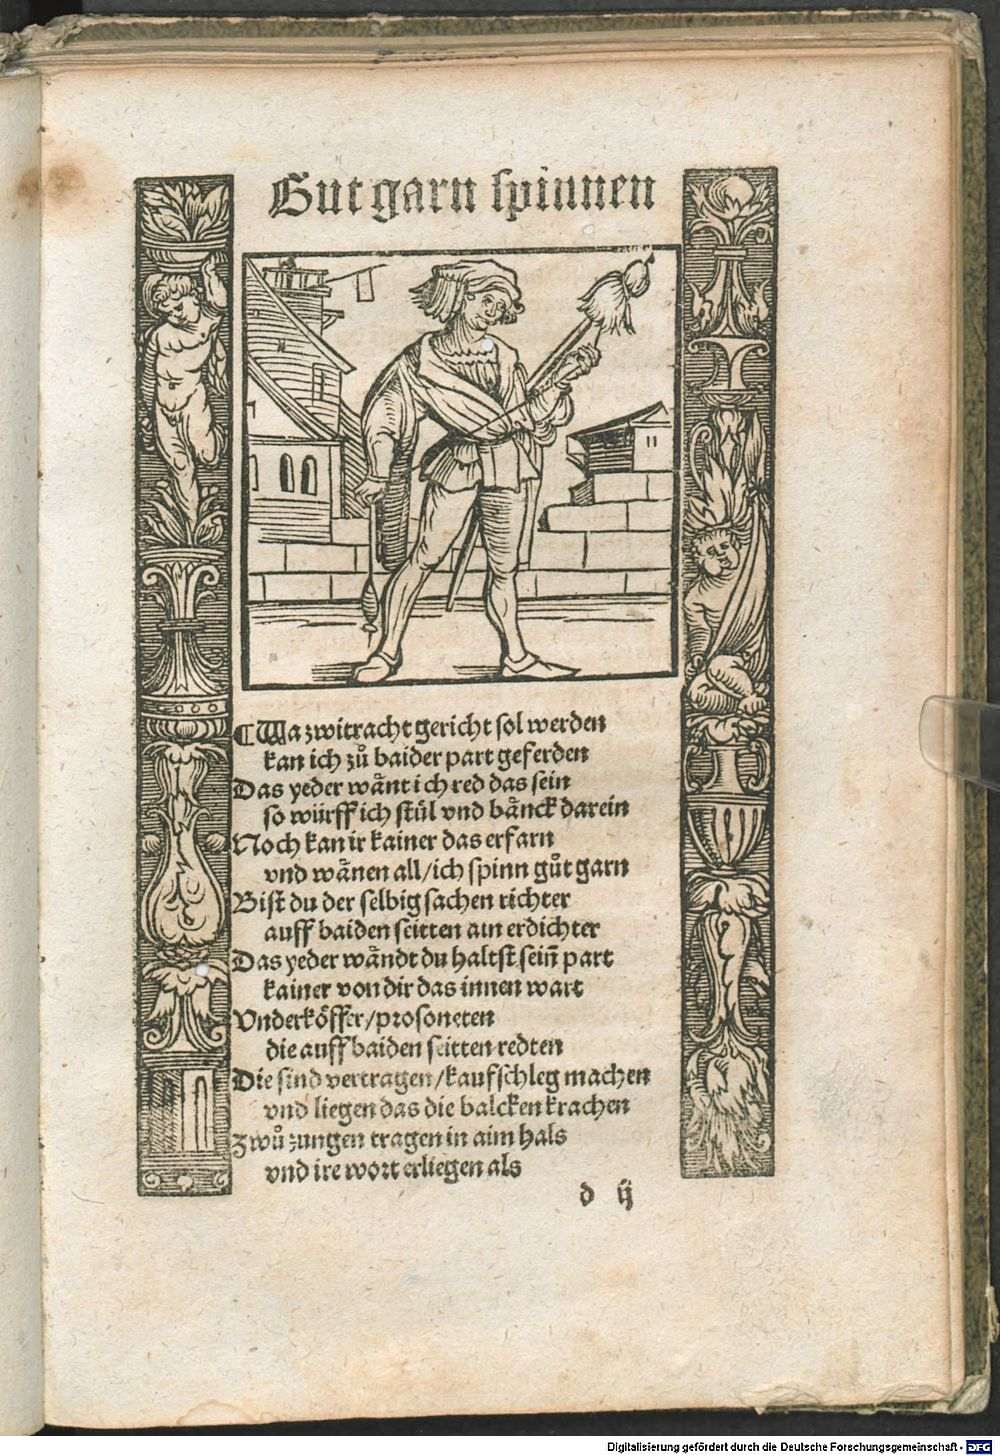 Gut garn spinnen
Wa zwitracht gericht sol werden
kan ich zů baider part geferden
Das yeder wånt ich red das sein
so würff ich stül vnd bånck darein
Noch kan ir kainer das erfarn
vnd wånen all/ich spinn gůt garn
Bist du der selbig sachen richter
auff baiden seitten ain erdichter
Das yeder wåndt du haltst sein̄ part
kainer von dir das innen wart
Vnderköffer/prosoneten
die auff baiden seitten redten
Die sind vertragen/kaufschleg machen
vnd liegen das die balcken krachen
zwů zungen tragen in aim hals
vnd ire wort erliegen als
d ij
Digitalisierung gefördert durch die Deutsche Forschungsgemeinschaft - DFG